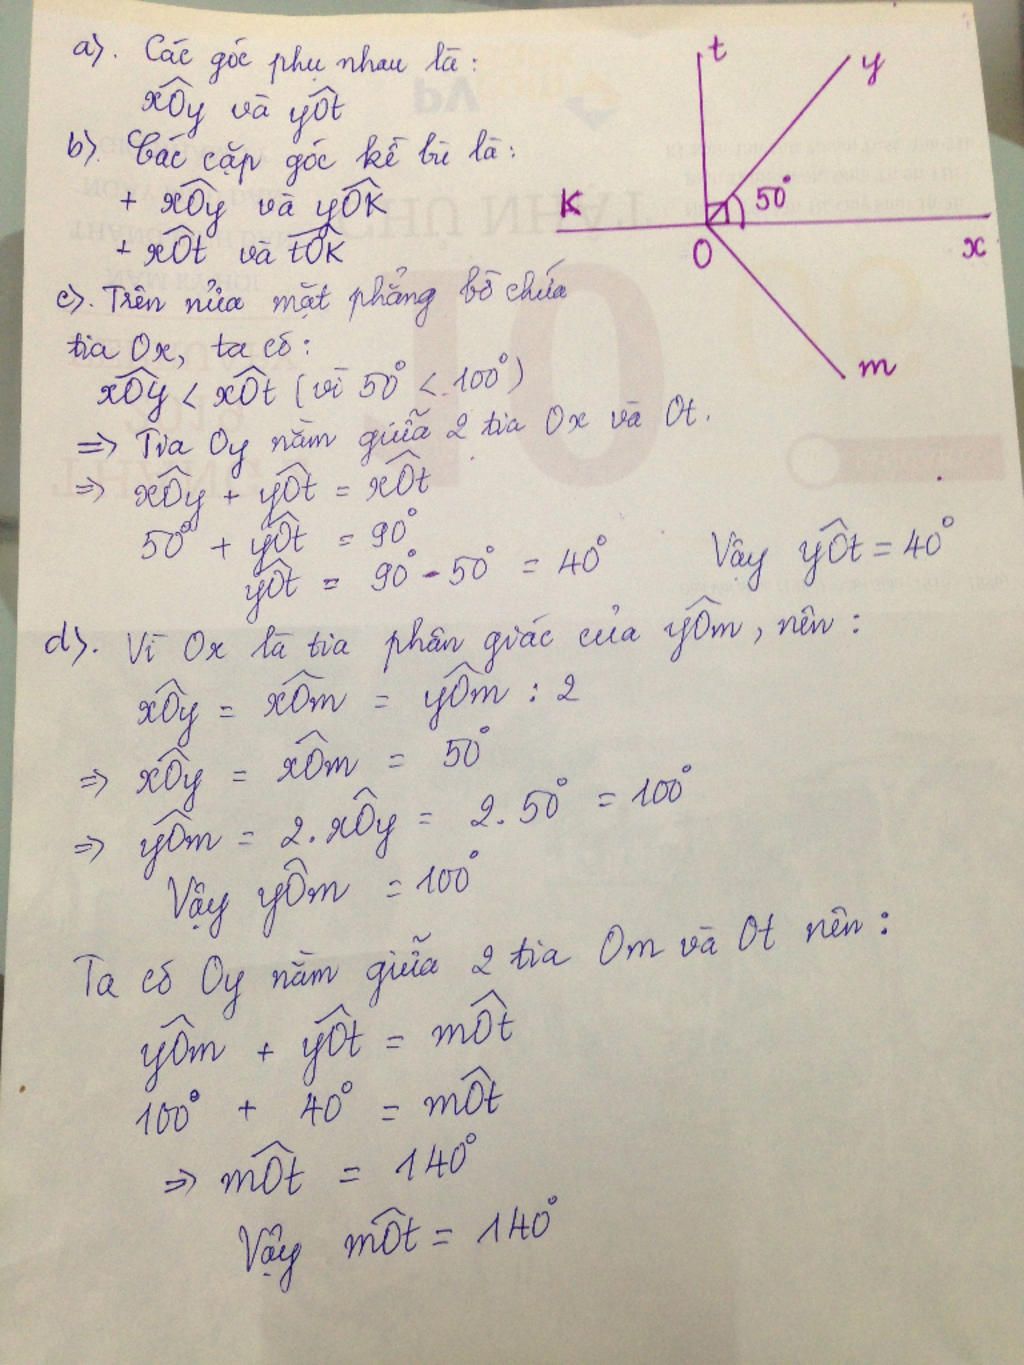 a). Các góc phụ nhau là:
xÔy và yÔt
b). Các cặp góc kề bù là:
+ xÔy và yÔK
+ xÔt và tÔK
c). Trên nửa mặt phẳng bờ chứa
tia Ox, ta có:
xÔy < xÔt (vì 50° < 100°)
=> Tia Oy nằm giữa 2 tia Ox và Ot.
=> xÔy + yÔt = xÔt
50° + yÔt = 90°
yÔt = 90° - 50° = 40°
Vậy yÔt = 40°
d). Vì Ox là tia phân giác của yÔm, nên:
xÔy = xÔm = yÔm : 2
=> xÔy = xÔm = 50°
=> yÔm = 2.xÔy = 2.50° = 100°
Vậy yÔm = 100°
Ta có Oy nằm giữa 2 tia Om và Ot nên:
yÔm + yÔt = mÔt
100° + 40° = mÔt
=> mÔt = 140°
Vậy mÔt = 140°
t
y
K
50°
O
x
m